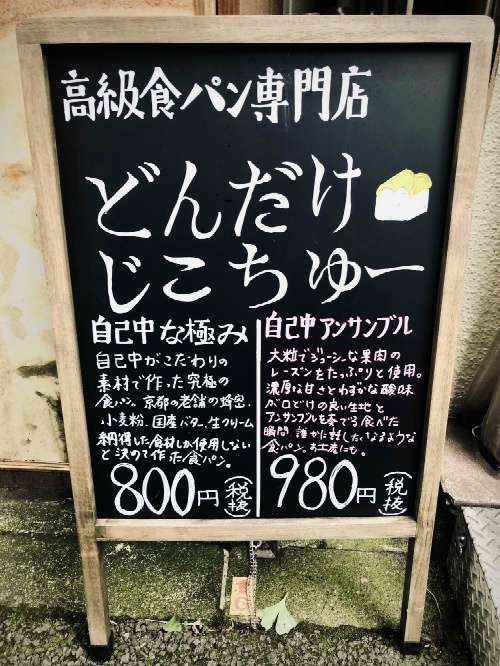 高級食パン専門店
どんだけ
じこちゅー
自己中な極み
自己中がこだわりの
素材で作った究極の
食パン。京都の老舗の蜂蜜、
小麦粉、国産バター、生クリーム
納得した食材しか使用しない
と決めて作った食パン。
800円(税抜)
自己中アンサンブル
大粒でジューシーな果肉の
レーズンをたっぷりと使用。
濃厚な甘さとわずかな酸味
が口どけの良い生地と
アンサンブルを奏でる食べた
瞬間、誰かに話したくなるような
食パン。お土産にも。
980円(税抜)